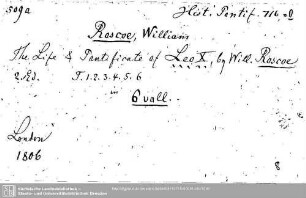 509a
Hist. Pontif. 716
Roscoe, William
The Life & Pontificate of Leo X, by Will. Roscoe
2. Ed. T. 1. 2. 3. 4. 5. 6
in
6 voll.
London
1806
8
Sächsische Landesbibliothek –
Staats- und Universitätsbibliothek Dresden